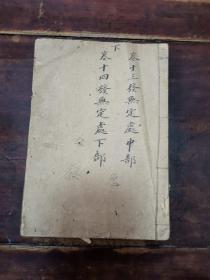 下
卷十三發無定處中部
卷十四發無定處下部